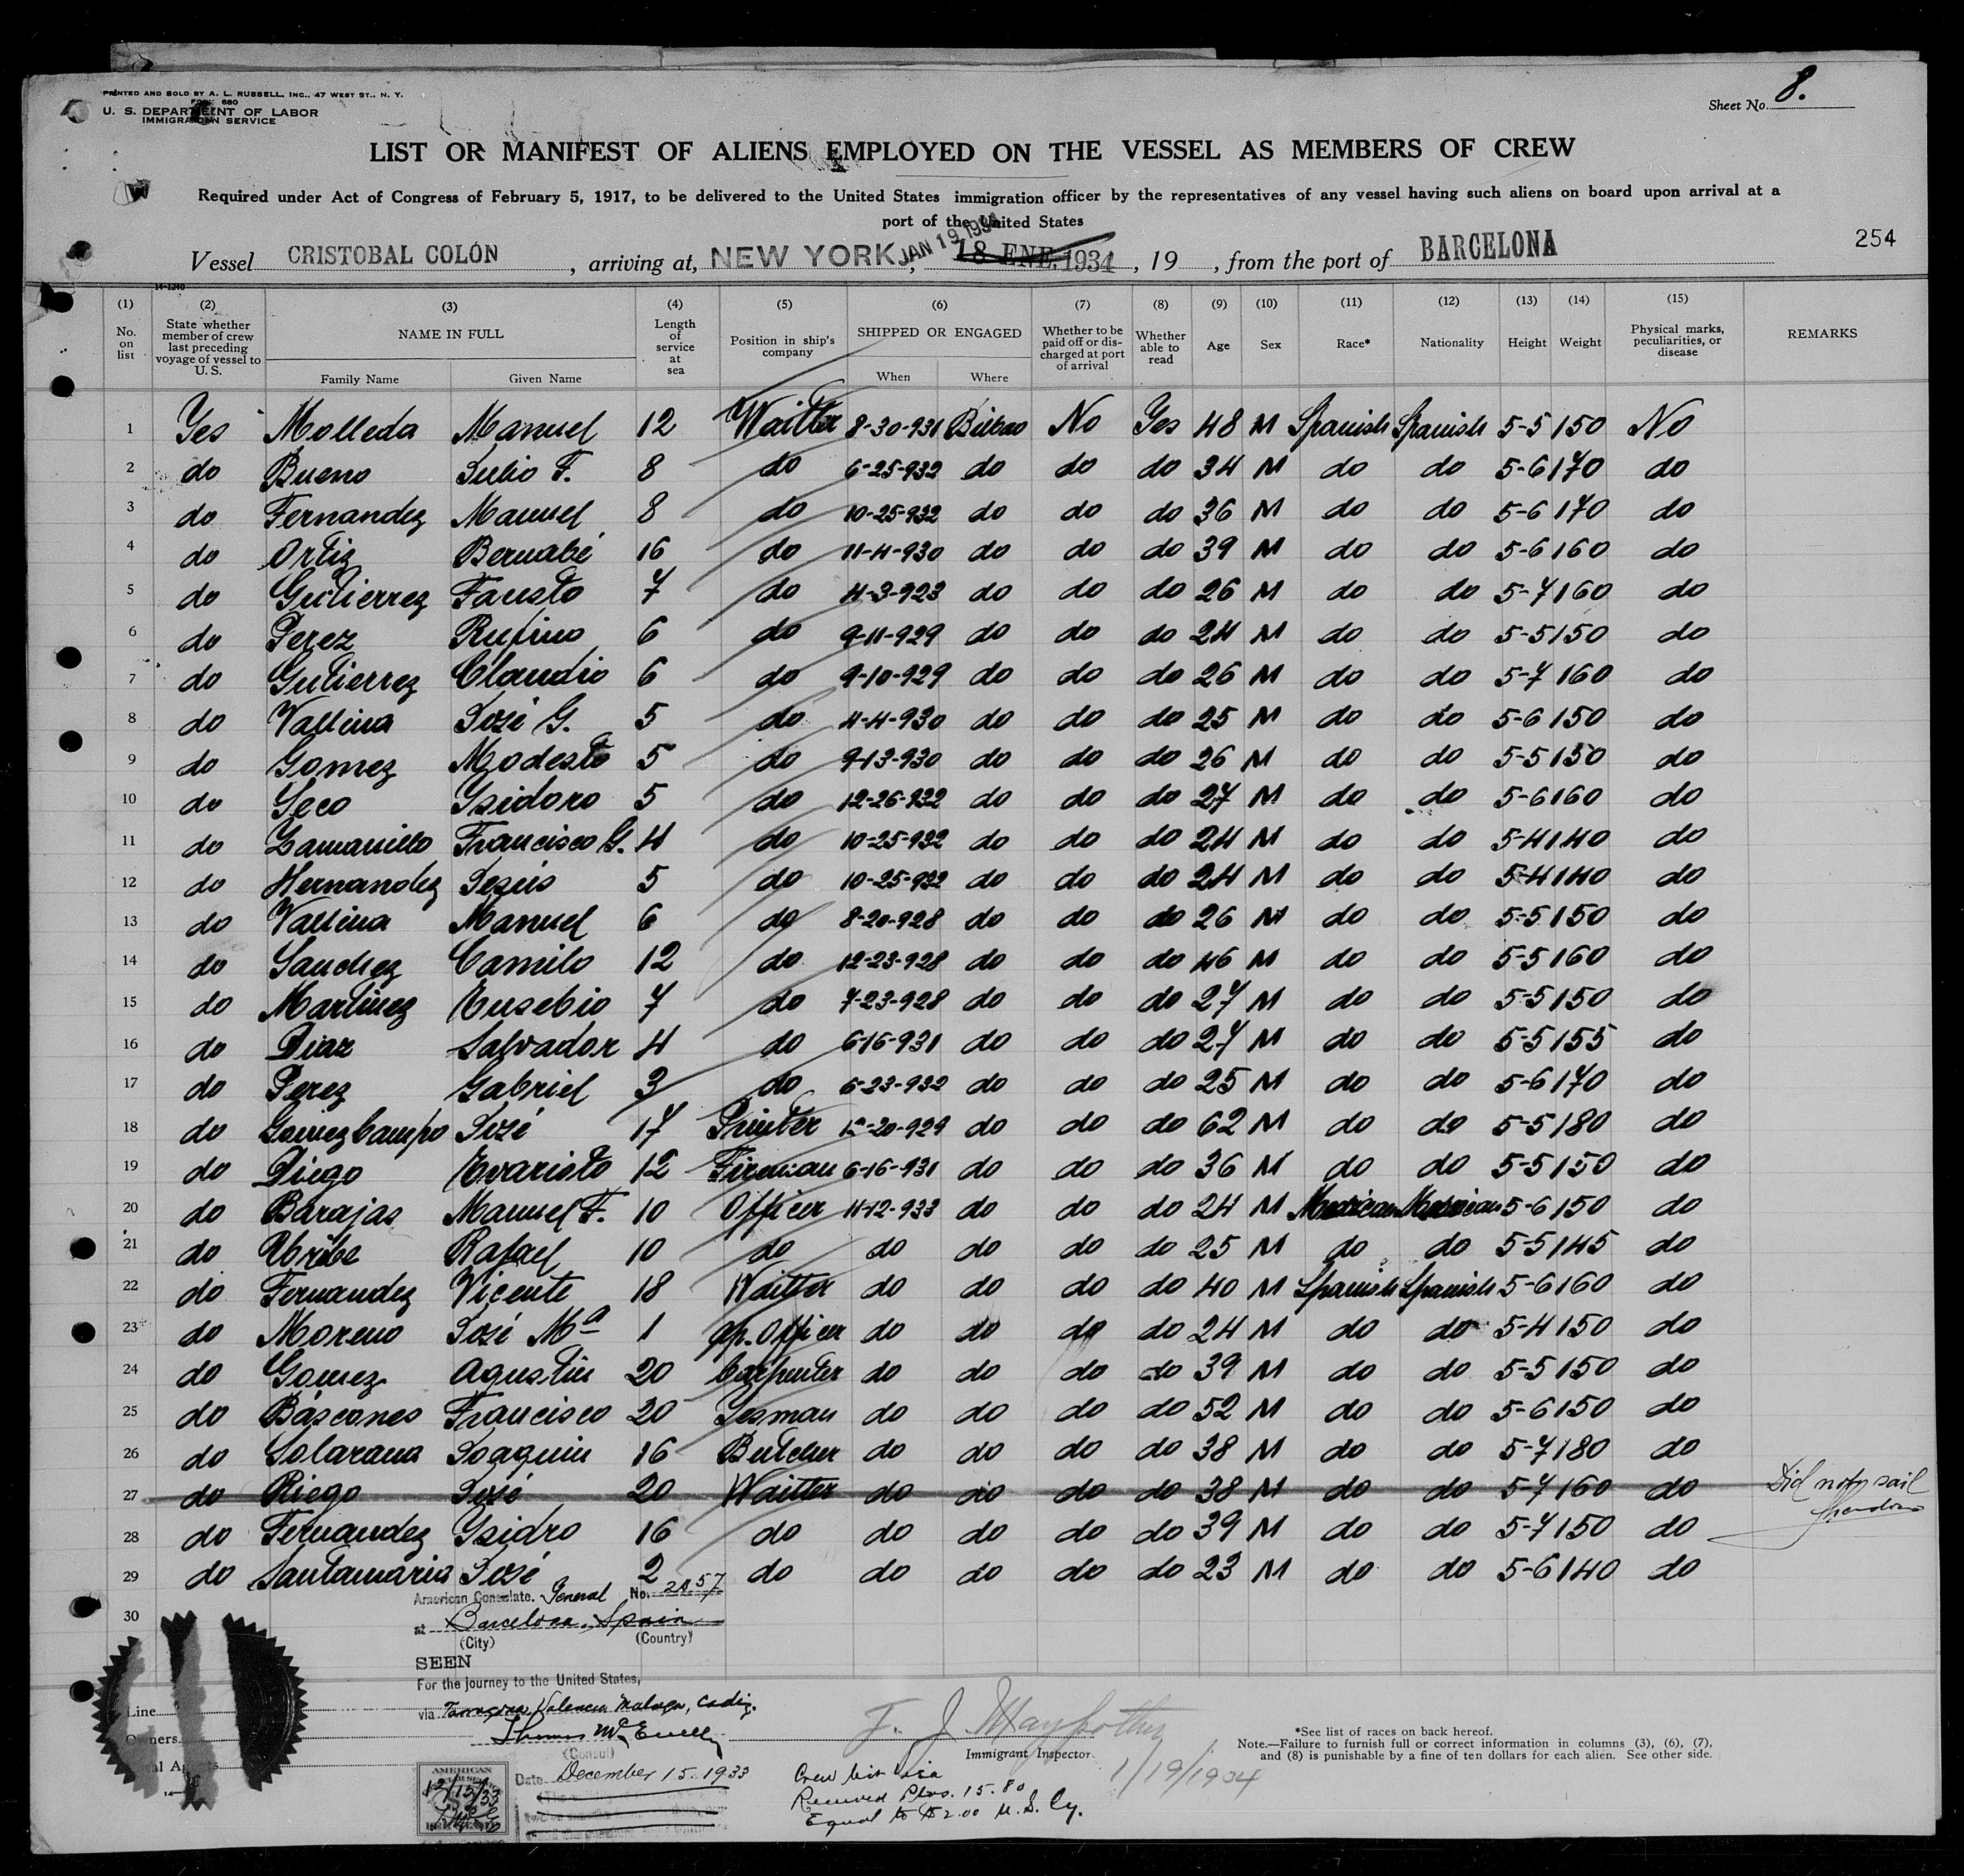 PRINTED AND SOLD BY A. L. RUSSELL, INC., 47 WEST ST., N. Y.
FORM 680
U. S. DEPARTMENT OF LABOR
IMMIGRATION SERVICE
Sheet No. 8.
LIST OR MANIFEST OF ALIENS EMPLOYED ON THE VESSEL AS MEMBERS OF CREW
Required under Act of Congress of February 5, 1917, to be delivered to the United States immigration officer by the representatives of any vessel having such aliens on board upon arrival at a
port of the United States
JAN 19 1934
Vessel CRISTOBAL COLÓN, arriving at, NEW YORK, 18 ENE. 1934, 19 , from the port of BARCELONA
254
14-1240
(1) (2) (3) (4) (5) (6) (7) (8) (9) (10) (11) (12) (13) (14) (15)
No. on list State whether member of crew last preceding voyage of vessel to U. S. NAME IN FULL Family Name Given Name Length of service at sea Position in ship's company SHIPPED OR ENGAGED When Where Whether to be paid off or discharged at port of arrival Whether able to read Age Sex Race* Nationality Height Weight Physical marks, peculiarities, or disease REMARKS
1 Yes Molleda Manuel 12 Waitter 8-30-931 Bilbao No Yes 48 M Spanish Spanish 5-5 150 No
2 do Bueno Julio F. 8 do 6-25-932 do do do 34 M do do 5-6 170 do
3 do Fernandez Manuel 8 do 10-25-932 do do do 36 M do do 5-6 170 do
4 do Ortiz Bernabé 16 do 11-4-930 do do do 39 M do do 5-6 160 do
5 do Gutierrez Fausto 7 do 4-3-923 do do do 26 M do do 5-7 160 do
6 do Perez Rufino 6 do 9-11-929 do do do 24 M do do 5-5 150 do
7 do Gutierrez Claudio 6 do 9-10-929 do do do 26 M do do 5-7 160 do
8 do Vallina José G. 5 do 4-4-930 do do do 25 M do do 5-6 150 do
9 do Gomez Modesto 5 do 9-13-930 do do do 26 M do do 5-5 150 do
10 do Seco Ysidoro 5 do 12-26-932 do do do 27 M do do 5-6 160 do
11 do Zamanillo Francisco G. 4 do 10-25-932 do do do 24 M do do 5-4 140 do
12 do Hernandez Jesús 5 do 10-25-932 do do do 24 M do do 5-4 140 do
13 do Vallina Manuel 6 do 8-20-928 do do do 26 M do do 5-5 150 do
14 do Sanchez Camilo 12 do 12-23-928 do do do 46 M do do 5-5 160 do
15 do Martinez Eusebio 7 do 7-23-928 do do do 27 M do do 5-5 150 do
16 do Diaz Salvador 4 do 6-16-931 do do do 27 M do do 5-5 155 do
17 do Perez Gabriel 3 do 6-23-932 do do do 25 M do do 5-6 170 do
18 do Gomez Campo José 17 Printer 12-20-929 do do do 62 M do do 5-5 180 do
19 do Diego Evaristo 12 Fireman 6-16-931 do do do 36 M do do 5-5 150 do
20 do Barajas Manuel F. 10 Officer 11-12-933 do do do 24 M Mexican Mexican 5-6 150 do
21 do Uribe Rafael 10 do do do do do 25 M do do 5-5 145 do
22 do Fernandez Vicente 18 Waitter do do do do 40 M Spanish Spanish 5-6 160 do
23 do Moreno José Mª 1 Ap. Officer do do do do 24 M do do 5-4 150 do
24 do Gomez Agustin 20 Carpenter do do do do 39 M do do 5-5 150 do
25 do Báscones Francisco 20 Yesman do do do do 52 M do do 5-6 150 do
26 do Solarana Joaquin 16 Butcher do do do do 38 M do do 5-7 180 do
27 do Riego José 20 Waitter do do do do 38 M do do 5-7 160 do Did not sail
28 do Fernandez Ysidro 16 do do do do do 39 M do do 5-7 150 do
29 do Santamaria José 2 do do do do do 23 M do do 5-6 140 do
30
American Consulate. General No. 2457
at Barcelona, Spain
(City) (Country)
SEEN
For the journey to the United States,
via Tarragona, Valencia, Malaga, Cadiz.
(Consul)
Line
Owners
Date December 15. 1933
AMERICAN
12/15/33
Crew list visa
Received Ptas. 15.80
Equal to $2.00 U.S. Cy.
Immigrant Inspector.
1/19/1934
*See list of races on back hereof.
Note.—Failure to furnish full or correct information in columns (3), (6), (7),
and (8) is punishable by a fine of ten dollars for each alien. See other side.